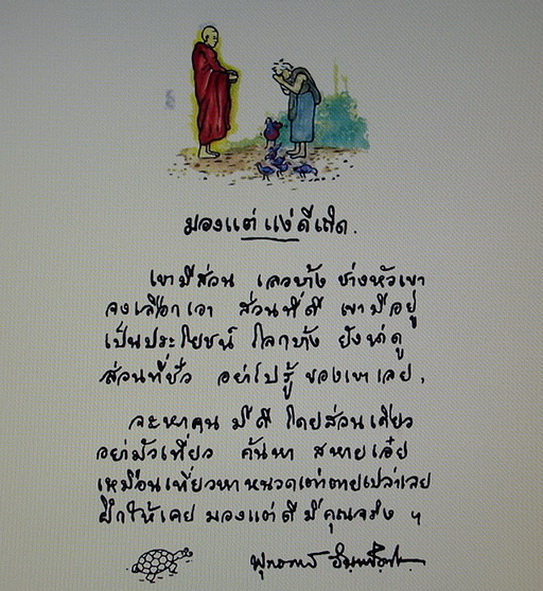 มองแต่แง่ดีเถิด.
เขามีส่วน เลวบ้าง ช่างหัวเขา
จงเลือกเอา ส่วนที่ดี เขามีอยู่
เป็นประโยชน์ โลกบ้าง ยังน่าดู
ส่วนที่ชั่ว อย่าไปรู้ ของเขาเลย,
จะหาคน มีดี โดยส่วนเดียว
อย่ามัวเที่ยว ค้นหา สหายเอ๋ย
เหมือนเที่ยวหา หนวดเต่า ตายเปล่าเลย
ฝึกให้เคย มองแต่ดี มีคุณจริง ฯ
พุทธทาส อินฺทปญฺโญ